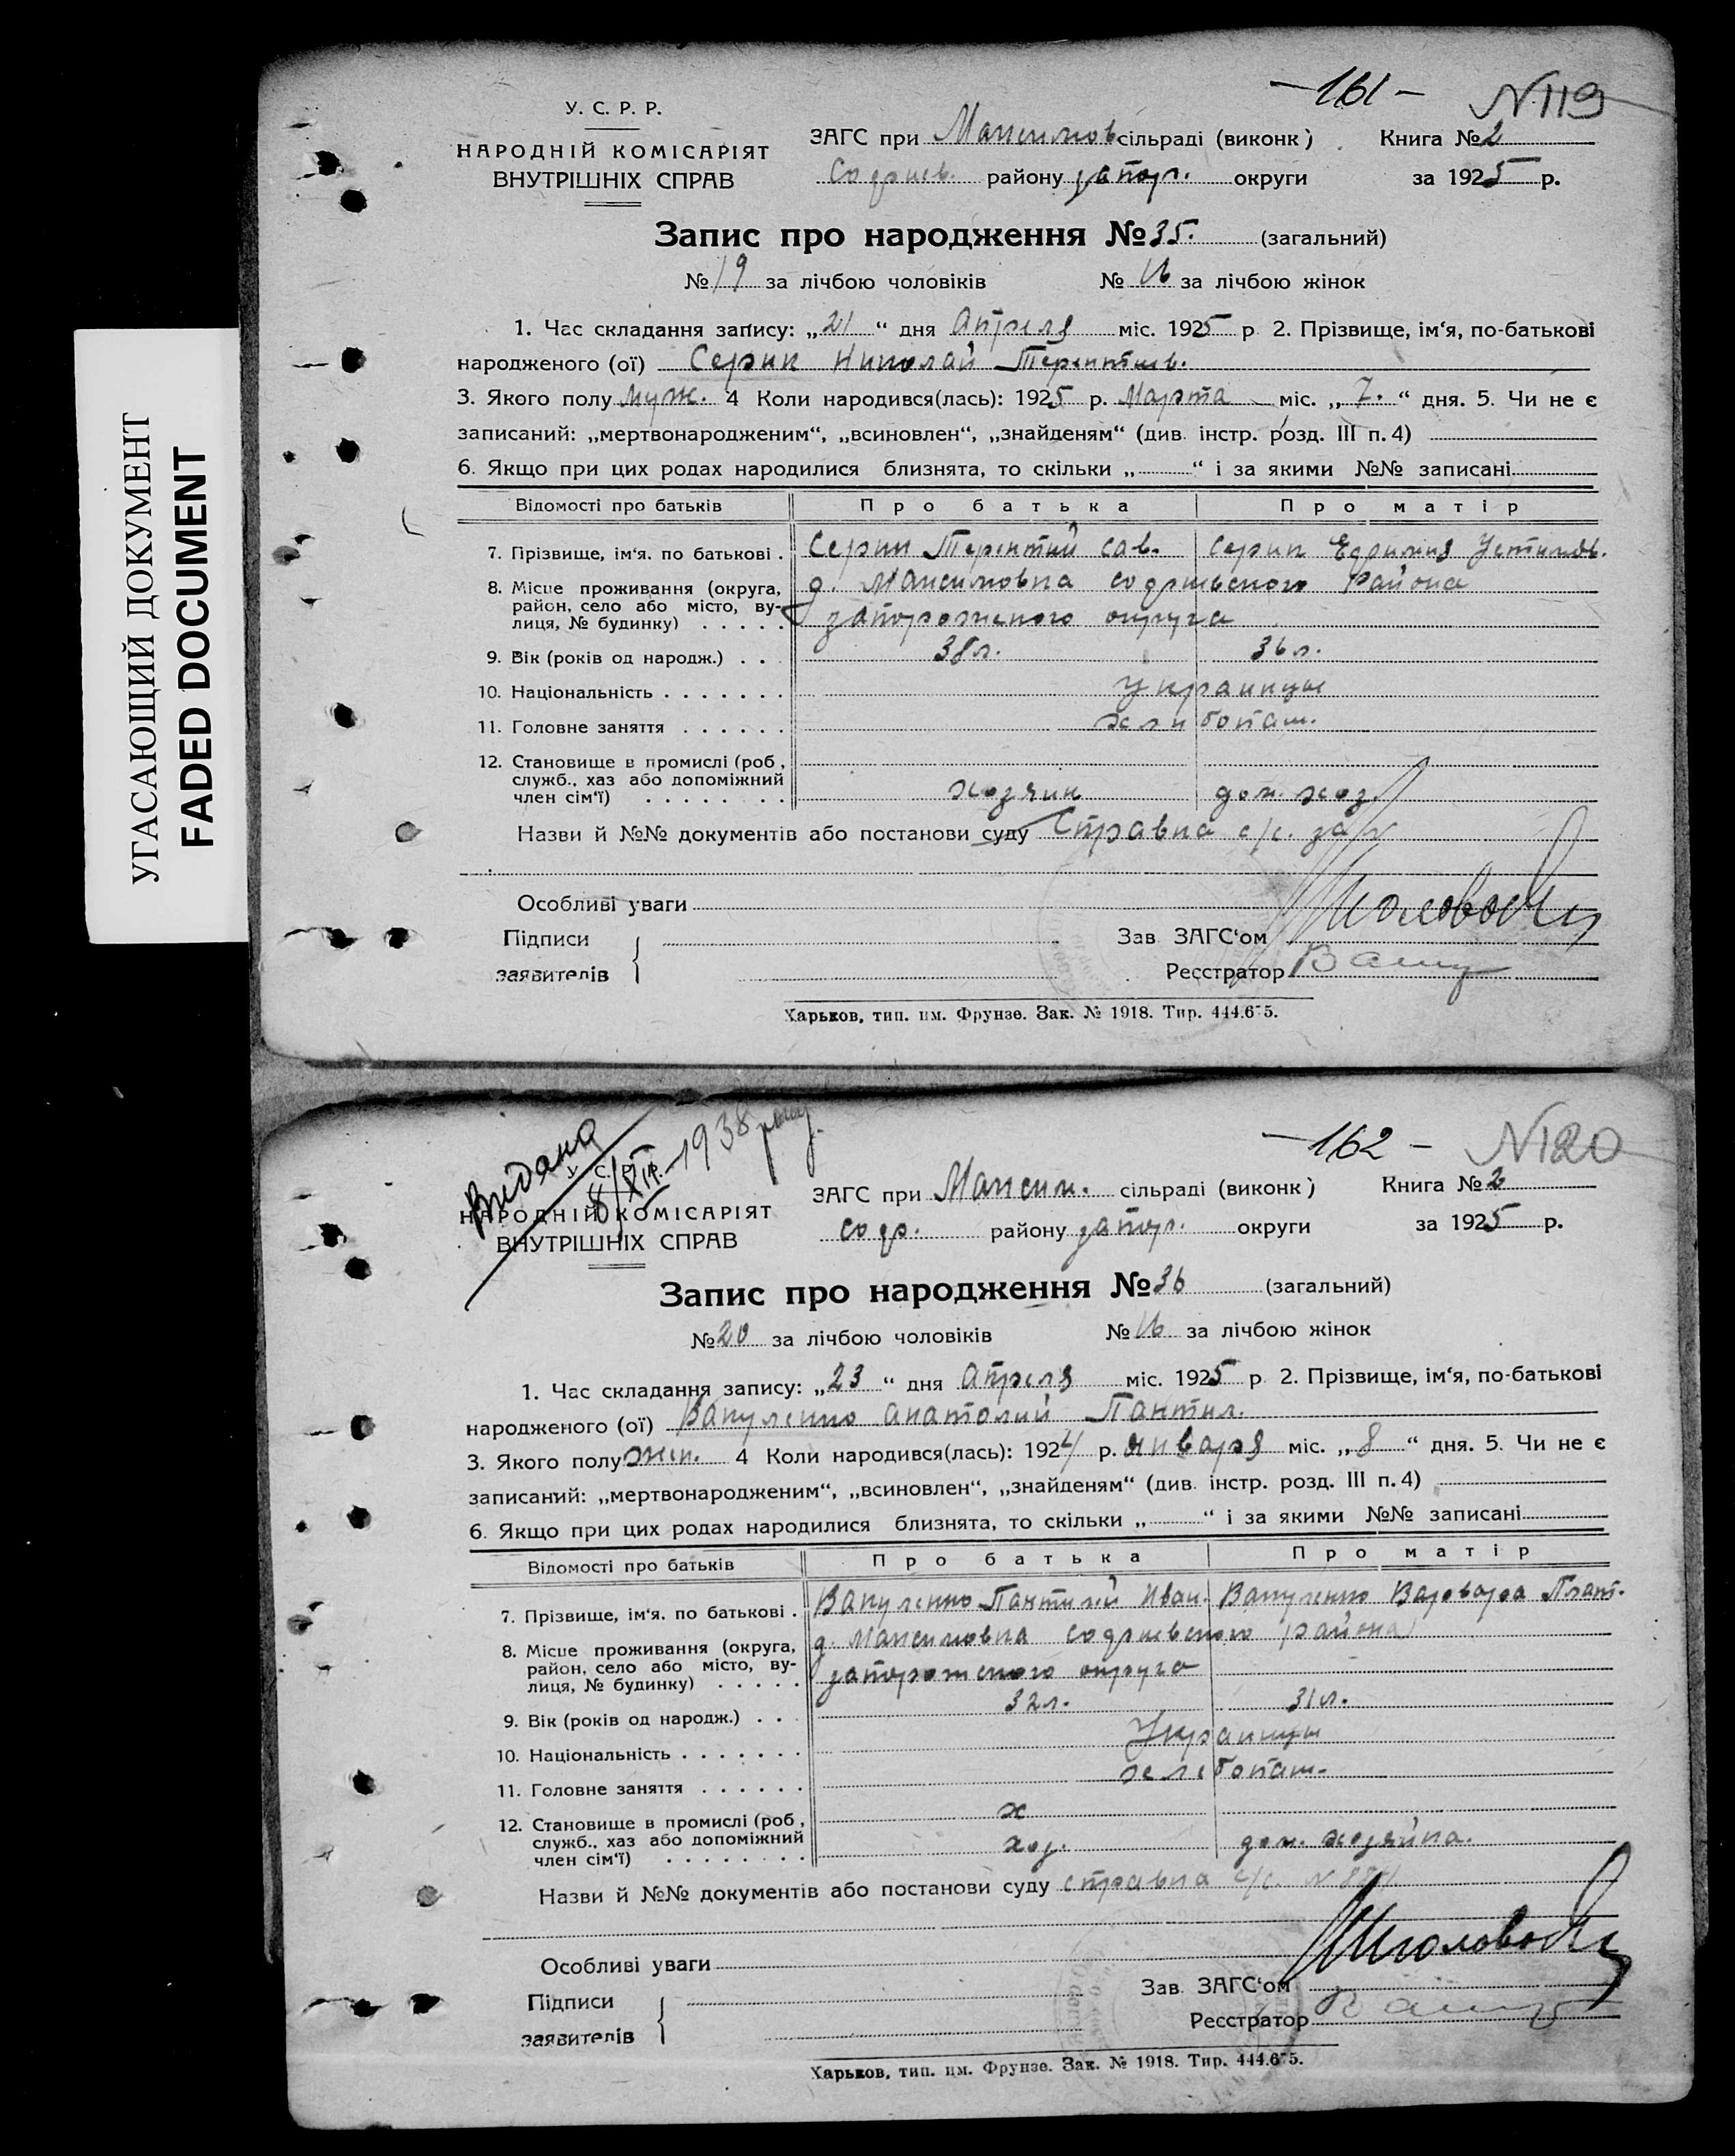 УГАСАЮЩИЙ ДОКУМЕНТ
FADED DOCUMENT
-161- N119
У. С. Р. Р.
НАРОДНІЙ КОМІСАРІЯТ
ВНУТРІШНІХ СПРАВ
ЗАГС при Максимов сільраді (виконк) Книга № 2
району запор. округи за 1925 р.
Запис про народження № 35. (загальний)
№ 19 за лічбою чоловіків № 16 за лічбою жінок
1. Час складання запису: „21“ дня Апреля міс. 1925 р 2. Прізвище, ім‘я, по-батькові
народженого (ої) Серик Николай Терентиев.
3. Якого полу муж. 4 Коли народився(лась): 1925 р. Марта міс. „7.“ дня. 5. Чи не є
записаний: „мертвонародженим“, „всиновлен“, „знайденям“ (див. інстр. розд. III п. 4)
6. Якщо при цих родах народилися близнята, то скільки „ “ і за якими №№ записані
Відомості про батьків Про батька Про матір
7. Прізвище, ім‘я. по батькові . Серик Терентий Сав. Серик Устинов.
8. Місце проживання (округа, д. Максимовка района
район, село або місто, ву- запорожского округа
лиця, № будинку) . . . . .
9. Вік (років од народж.) . . . 38 л. 36 л.
10. Національність . . . . . . . Украинцы
11. Головне заняття . . . . . . хлебопаш.
12. Становище в промислі (роб ,
служб., хаз або допоміжний
член сім‘ї) . . . . . . . . хозяин дом. хоз.
Назви й №№ документів або постанови суду Справка с/с. за №
Особливі уваги
Підписи
заявителів
Зав. ЗАГС‘ом
Реєстратор
Харьков, тип. им. Фрунзе. Зак. № 1918. Тир. 444.675.
Видана
8/XII-1938 року.
-162- N120
У. С. Р. Р.
НАРОДНІЙ КОМІСАРІЯТ
ВНУТРІШНІХ СПРАВ
ЗАГС при Максим. сільраді (виконк) Книга № 2
району запор. округи за 1925 р.
Запис про народження № 36 (загальний)
№ 20 за лічбою чоловіків № 16 за лічбою жінок
1. Час складання запису: „23“ дня Апреля міс. 1925 р 2. Прізвище, ім‘я, по-батькові
народженого (ої) Вакуленко Анатолий Пантил.
3. Якого полу 4 Коли народився(лась): 1924 р. января міс. „8“ дня. 5. Чи не є
записаний: „мертвонародженим“, „всиновлен“, „знайденям“ (див. інстр. розд. III п. 4)
6. Якщо при цих родах народилися близнята, то скільки „ “ і за якими №№ записані
Відомості про батьків Про батька Про матір
7. Прізвище, ім‘я. по батькові . Вакуленко Пантилей Иван. Вакуленко Варвара
8. Місце проживання (округа, д. Максимовка района
район, село або місто, ву- запорожского округа
лиця, № будинку) . . . . .
9. Вік (років од народж.) . . . 32 л. 31 л.
10. Національність . . . . . . . Украинцы
11. Головне заняття . . . . . . хлебопаш.
12. Становище в промислі (роб , х
служб., хаз або допоміжний
член сім‘ї) . . . . . . . . хоз. дом. хозяйка.
Назви й №№ документів або постанови суду справка с/с. №
Особливі уваги
Підписи
заявителів
Зав. ЗАГС‘ом
Реєстратор
Харьков, тип. им. Фрунзе. Зак. № 1918. Тир. 444.675.